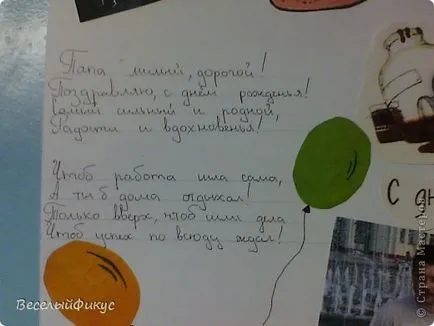 Папа милий, дорогой!
Поздравляю, с днём рожденья!
Самий сильний и родной,
Радости и вдохновенья!
Чтоб работа шла сама,
А ты б дома отдыхал!
Только вверх, чтоб шли дела
Чтоб успех по всюду ждал!
С
ВеселыйФикус
© Страна Мастеров